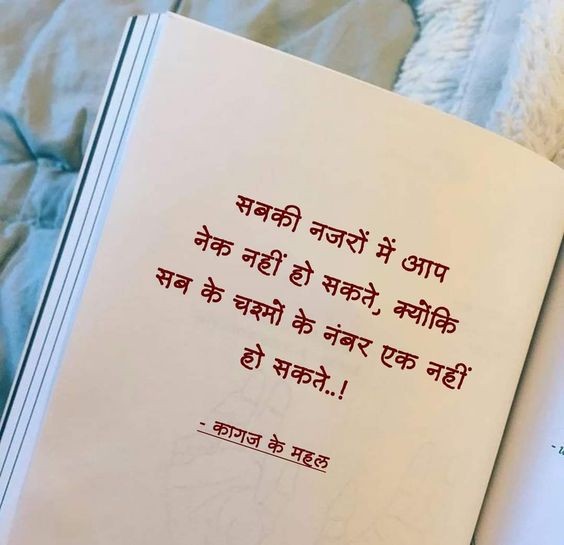 सबकी नजरों में आप
नेक नहीं हो सकते, क्योंकि
सब के चश्मों के नंबर एक नहीं
हो सकते..!
- कागज के महल